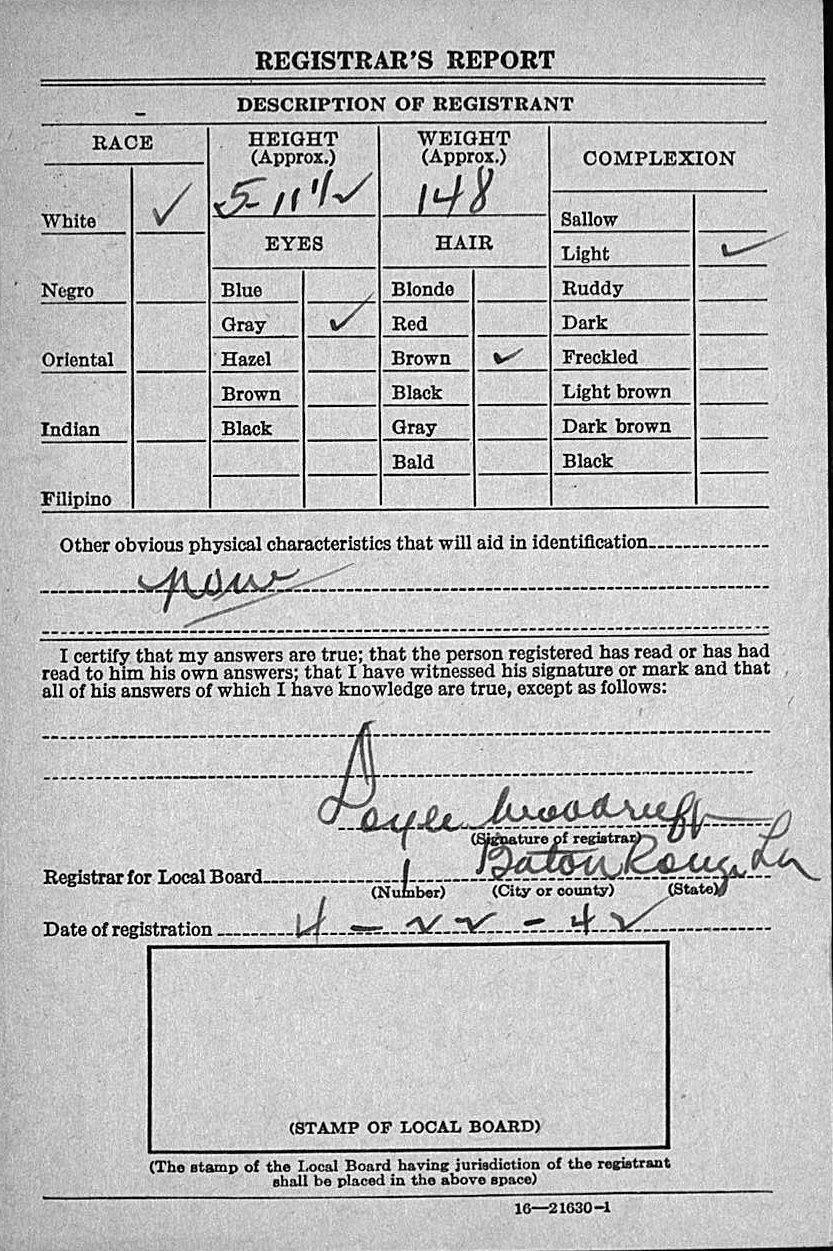 REGISTRAR'S REPORT
DESCRIPTION OF REGISTRANT
RACE
HEIGHT
(Approx.)
WEIGHT
(Approx.)
COMPLEXION
5-11 1/2
148
White ✓
EYES
HAIR
Sallow
Light ✓
Negro
Blue
Blonde
Ruddy
Gray ✓
Red
Dark
Oriental
Hazel
Brown ✓
Freckled
Brown
Black
Light brown
Indian
Black
Gray
Dark brown
Bald
Black
Filipino
Other obvious physical characteristics that will aid in identification
none
I certify that my answers are true; that the person registered has read or has had
read to him his own answers; that I have witnessed his signature or mark and that
all of his answers of which I have knowledge are true, except as follows:
Doyle Woodruff
(Signature of registrar)
Registrar for Local Board 1 Baton Rouge La
(Number) (City or county) (State)
Date of registration 4-22-42
(STAMP OF LOCAL BOARD)
(The stamp of the Local Board having jurisdiction of the registrant
shall be placed in the above space)
16—21630-1